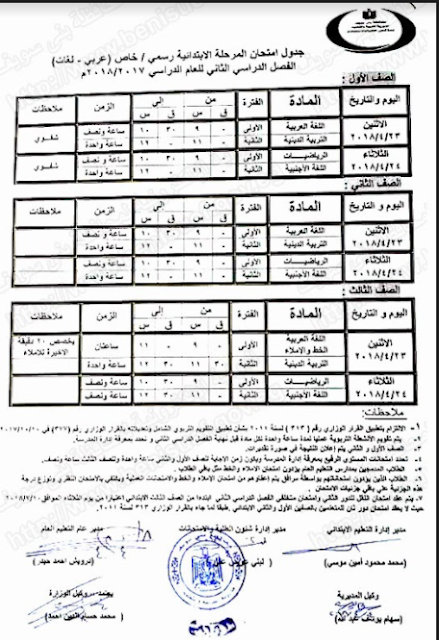 جدول امتحان المرحلة الابتدائية رسمي / خاص (عربي - لغات)
الفصل الدراسي الثاني للعام الدراسي ٢٠١٨/٢٠١٧م
الصف الأول :
اليوم والتاريخ المادة الفترة من إلى الزمن ملاحظات
ق س ق س
الاثنين ٢٠١٨/٤/٢٣ اللغة العربية الأولى - ٩ ٣٠ ١٠ ساعة ونصف شفوي
التربية الدينية الثانية - ١١ - ١٢ ساعة واحدة
الثلاثاء ٢٠١٨/٤/٢٤ الرياضيات الأولى - ٩ ٣٠ ١٠ ساعة ونصف شفوي
اللغة الأجنبية الثانية - ١١ - ١٢ ساعة واحدة
الصف الثاني :
اليوم و التاريخ المادة الفترة من إلى الزمن ملاحظات
ق س ق س
الاثنين ٢٠١٨/٤/٢٣ اللغة العربية الأولى - ٩ ٣٠ ١٠ ساعة و نصف
التربية الدينية الثانية - ١١ - ١٢ ساعة واحدة
الثلاثاء ٢٠١٨/٤/٢٤ الرياضيات الأولى - ٩ ٣٠ ١٠ ساعة و نصف
اللغة الأجنبية الثانية - ١١ - ١٢ ساعة واحدة
الصف الثالث :
اليوم و التاريخ المادة الفترة من إلى الزمن ملاحظات
ق س ق س
الاثنين ٢٠١٨/٤/٢٣ اللغة العربية الخط والاملاء الأولى - ٩ - ١١ ساعتان يخصص ٢٠ دقيقة الاخيرة للاملاء
التربية الدينية الثانية ٣٠ ١١ ٣٠ ١٢ ساعة واحدة
الثلاثاء ٢٠١٨/٤/٢٤ الرياضيات الأولى - ٩ ٣٠ ١٠ ساعة ونصف
اللغة الأجنبية الثانية - ١١ ٣٠ ١٢ ساعة ونصف
ملاحظات:
١. الالتزام بتطبيق القرار الوزاري رقم (٣١٣) لسنة ٢٠١١ بشأن تطبيق التقويم التربوي الشامل وتعديلاته بالقرار الوزاري رقم (٣٧٧) في
٢. يتم تقويم الأنشطة التربوية عمليا لمدة ساعة واحدة لكل مادة قبل نهاية الفصل الدراسي الثاني و تحدد بمعرفة إدارة المدرسة.
٣. الصف الأول و الثاني يتم إعلان النتيجة في صورة تقديرات.
٤. تحدد امتحانات المستوى الرفيع بمعرفة إدارة المدرسة ويكون زمن الإجابة للصف الأول والثاني ساعة واحدة والصف الثالث ساعة ونصف.
٥. الطلاب المدمجين بمدارس التعليم العام يؤدون امتحان الإملاء والخط مثل باقي الطلاب.
٦. الطلاب الذين يؤدون امتحاناتهم بواسطة مرافق يتم إعفاؤهم من امتحان الإملاء والخط والامتحانات العملية ويكتفى بالامتحان النظري وتوزع درجة هذه الجزئية على باقي جزئيات الامتحان.
٧.
مدير إدارة التعليم الابتدائي
(محمد محمود أمين موسى)
مدير إدارة شئون الطلبة والامتحانات
مدير عام التعليم العام
(درويش أحمد حيدر)
وكيل المديرية
يعتمد، وكيل الوزارة